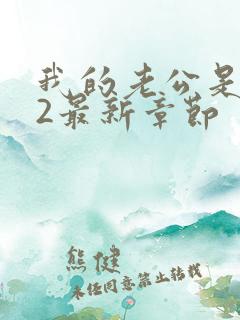 我的老公是
2最新章节
熊健
未经同意禁止转载